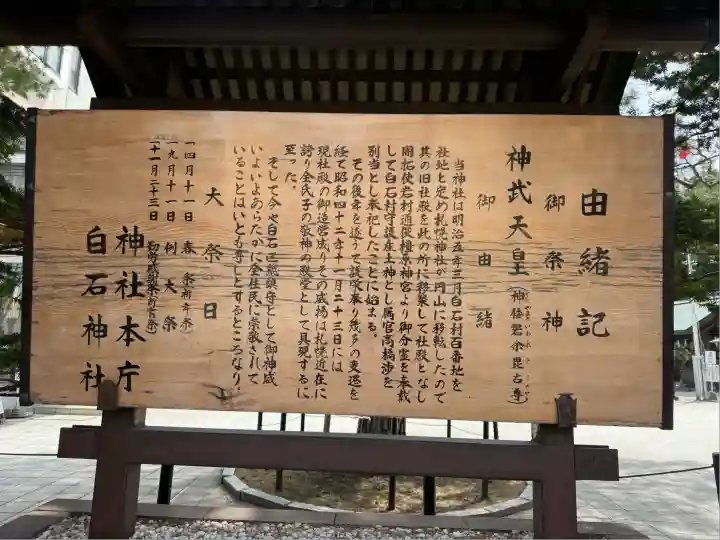 由緒記
御祭神
神武天皇(神倭磐余毘古尊)
御由緒
当神社は明治五年三月白石村百番地を
社地と定め札幌神社が円山に移転したので
其の旧社殿を此の所に移築して社殿となし
開拓使岩村通俊橿原神宮より御分霊を奉戴
して白石村守護産土神とし属官高橋渉を
別当とし奉祀したことに始まる。
その後年を逐うて護持奉り幾多の変遷を
経て昭和四十二年十一月二十三日には
現社殿の御造営成りその威揚は札幌近在に
誇り全氏子の敬神の殿堂として具現するに
至った。
そして今や白石区総鎮守として御神威
いよいよあらたかに全住民に崇敬されて
いることはいとも尊しとするところなり
大祭日
一四月十一日 春祭(祈年祭)
一九月十一日 例大祭
一十一月二十三日
神社本庁
白石神社